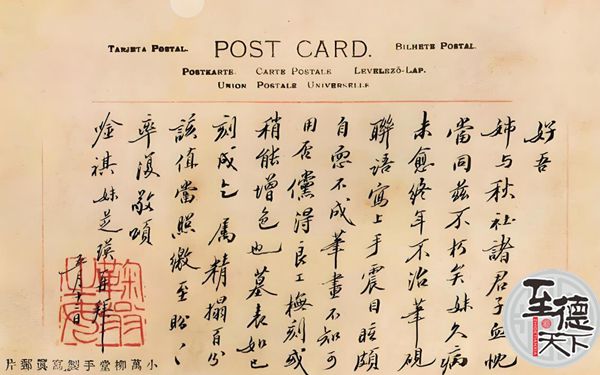 TARJETA POSTAL.
POST CARD.
BILHETE POSTAL.
POSTKARTE. CARTE POSTALE LEVELEZŐ-LAP.
UNION POSTALE UNIVERSELLE
好吾
姊与秋社諸君子血忱
當同茲不朽矣妹久病
未愈終年不治筆硯
聯語寫上手震目眩頗
自慙不成筆畫不知可
用否儻得良工橅刻或
稍能增色也墓表如已
刻成乞屬精搨百分
該值當照繳至盼〻
率復敬頌
唫祺妹芝瑛再拜
小萬柳堂手製寫眞郵片
至德天下